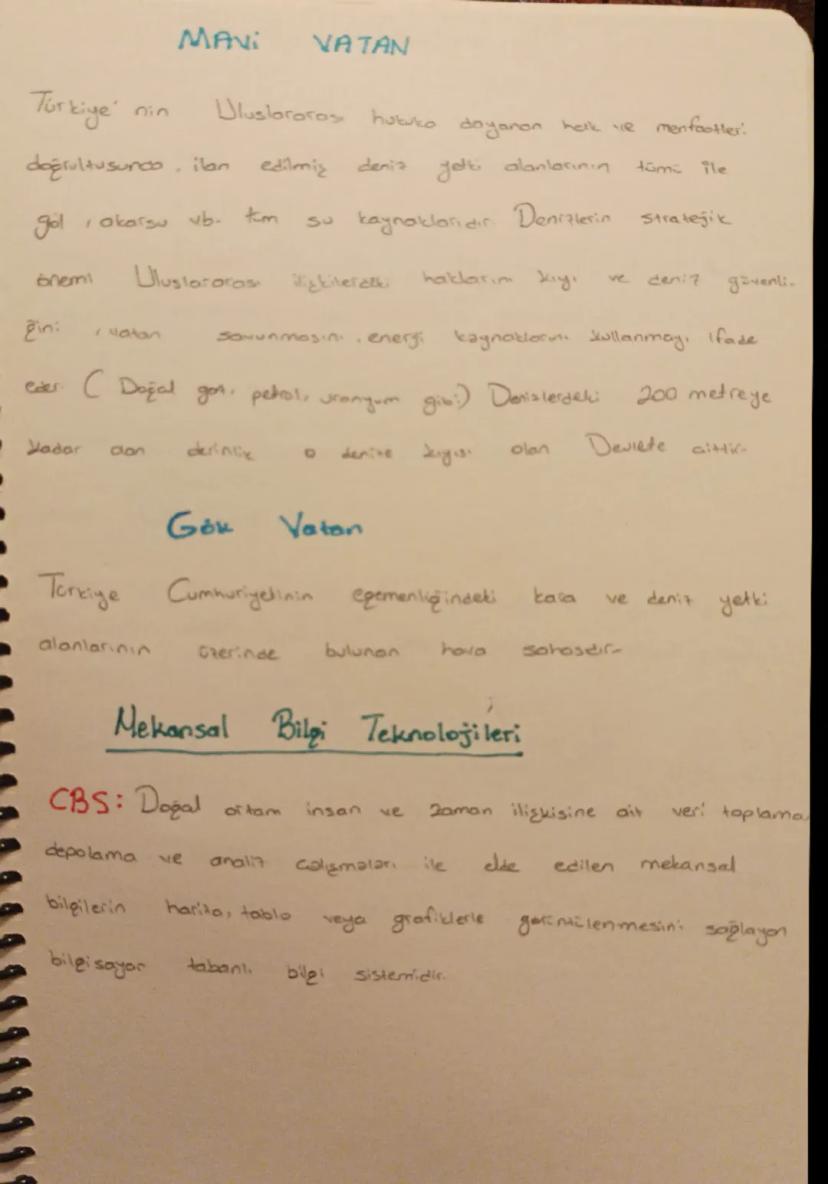 MAVİ VATAN
Türkiye'nin Uluslararası hukuka dayanan hak ve menfaatleri
doğrultusunda, ilan edilmiş deniz yetki alanlarının tümü ile
göl, akarsu vb. tüm su kaynaklarıdır. Denizlerin stratejik
önemi Uluslararası ilişkilerdeki haklarını kıyı ve deniz güvenli-
ğini, vatan savunmasını, enerji kaynaklarını kullanmayı ifade
eder. ( Doğal gaz, petrol, uranyum gibi) Denizlerdeki 200 metreye
kadar olan derinlik o denize kıyısı olan Devlete aittir.
Gök Vatan
Türkiye Cumhuriyetinin egemenliğindeki kara ve deniz yetki
alanlarının üzerinde bulunan hava sahasıdır.
Mekansal Bilgi Teknolojileri
CBS: Doğal ortam insan ve zaman ilişkisine ait veri toplama
depolama ve analiz çalışmaları ile elde edilen mekansal
bilgilerin harita, tablo veya grafiklerle görüntülenmesini sağlayan
bilgisayar tabanlı bilgi sistemidir.